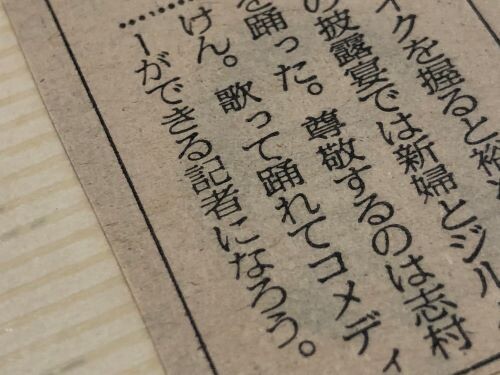 イクを握ると裕
の披露宴では新婦とジル
を踊った。尊敬するのは志村
けん。歌って踊れてコメディ
ーができる記者になろう。